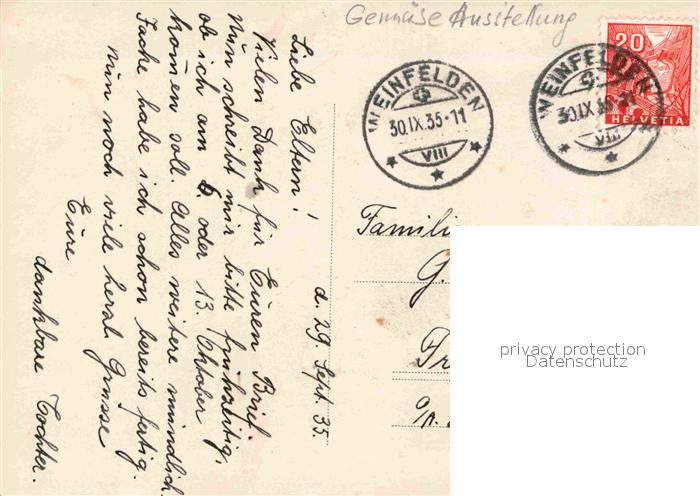 Gemüse Ausstellung
20
HELVETIA
WEINFELDEN
30.IX.35-11
VIII
WEINFELDEN
30.IX.35-11
VIII
d. 29. Sept. 35.
Liebe Eltern!
Vielen Dank für Euren Brief.
Nun schreibt mir bitte frühzeitig,
ob ich am 6. oder 13. Oktober
kommen soll. Alles weitere mündlich.
habe ich schon bereits fertig.
nun noch viele herzl. Grüsse
Eure
dankbare Tochter.
Famili
G.
Fr
privacy protection
Datenschutz